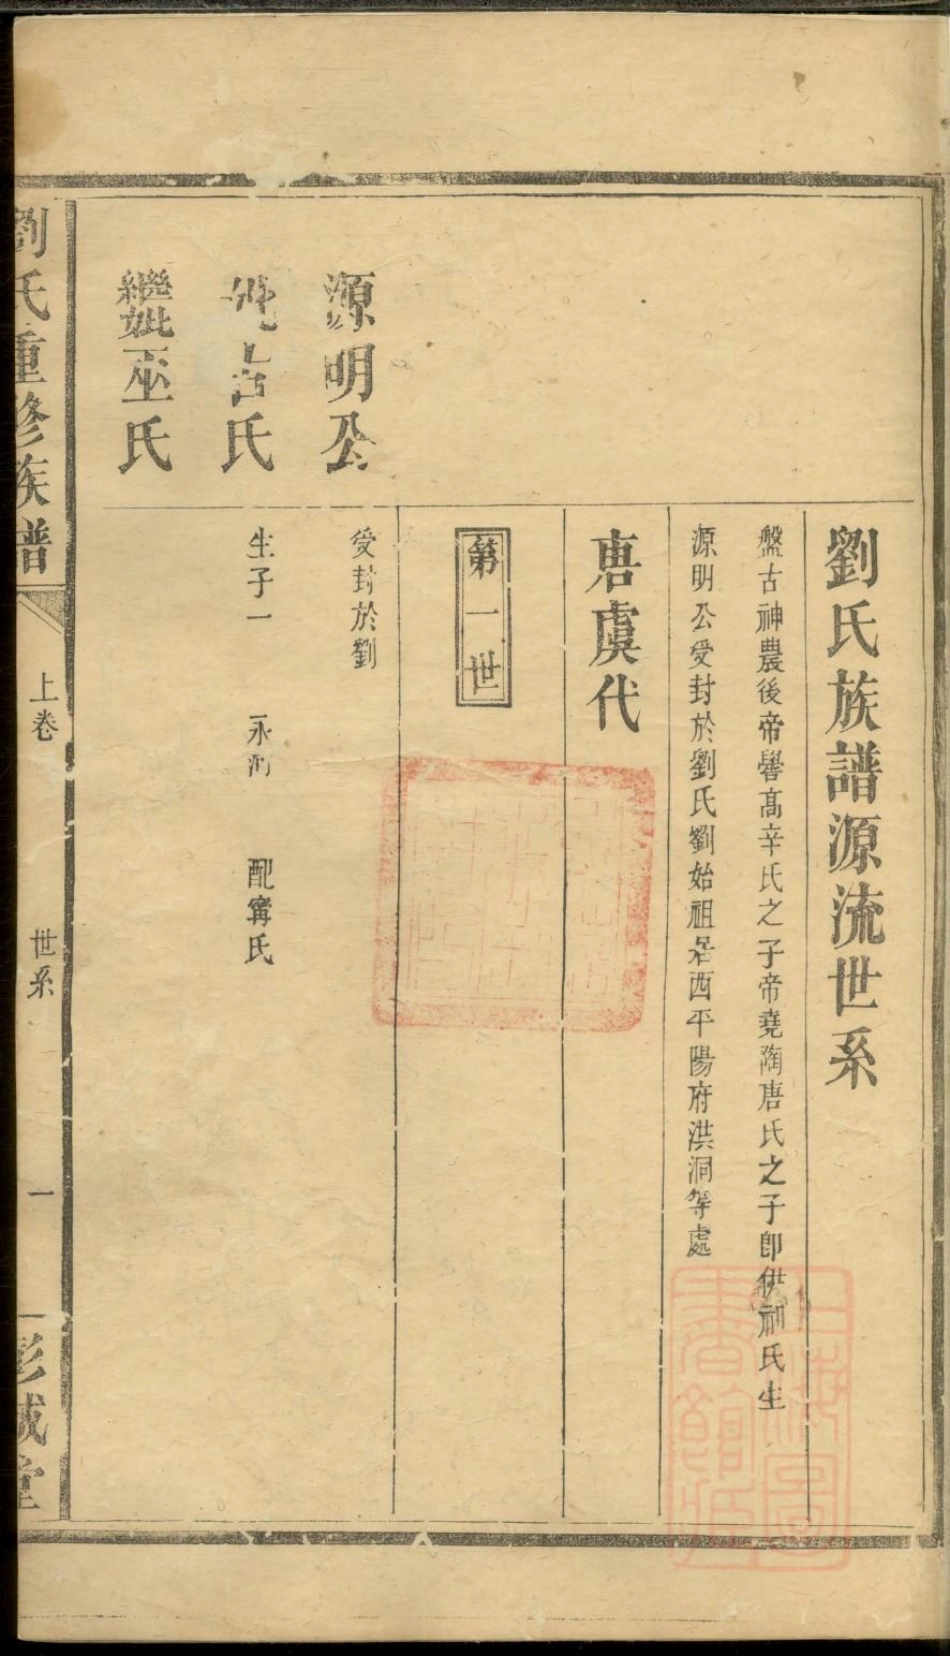 劉氏族譜源流世系
盤古神農後帝嚳髙辛氏之子帝堯陶唐氏之子卽伊祁氏生
源明公受封於劉氏劉始祖居西平陽府洪洞等處
唐虞代
第一世
源明公
受封於劉
妣吉氏
生子一 永河 配甯氏
繼妣巫氏
劉氏重修族譜
上卷
世系
一
彭城堂
上海圖
書館藏